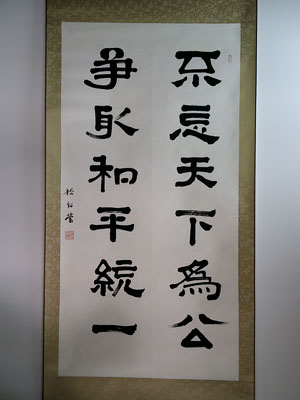 不忘天下為公
爭取和平統一